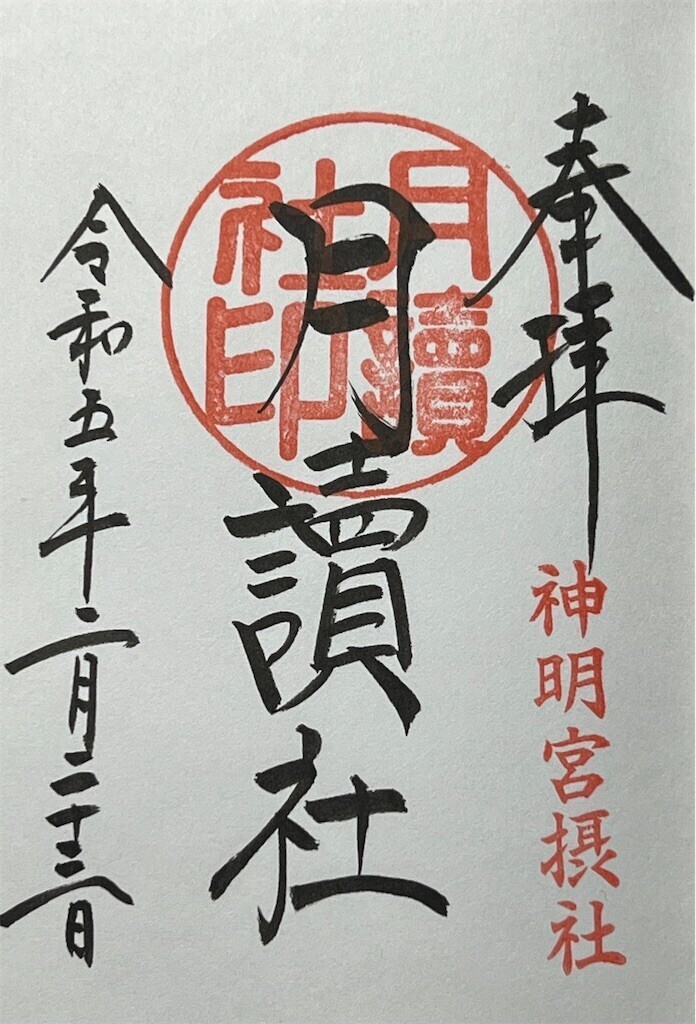 奉拝
神明宮摂社
月讀
社印
月讀社
令和五年二月二十三日